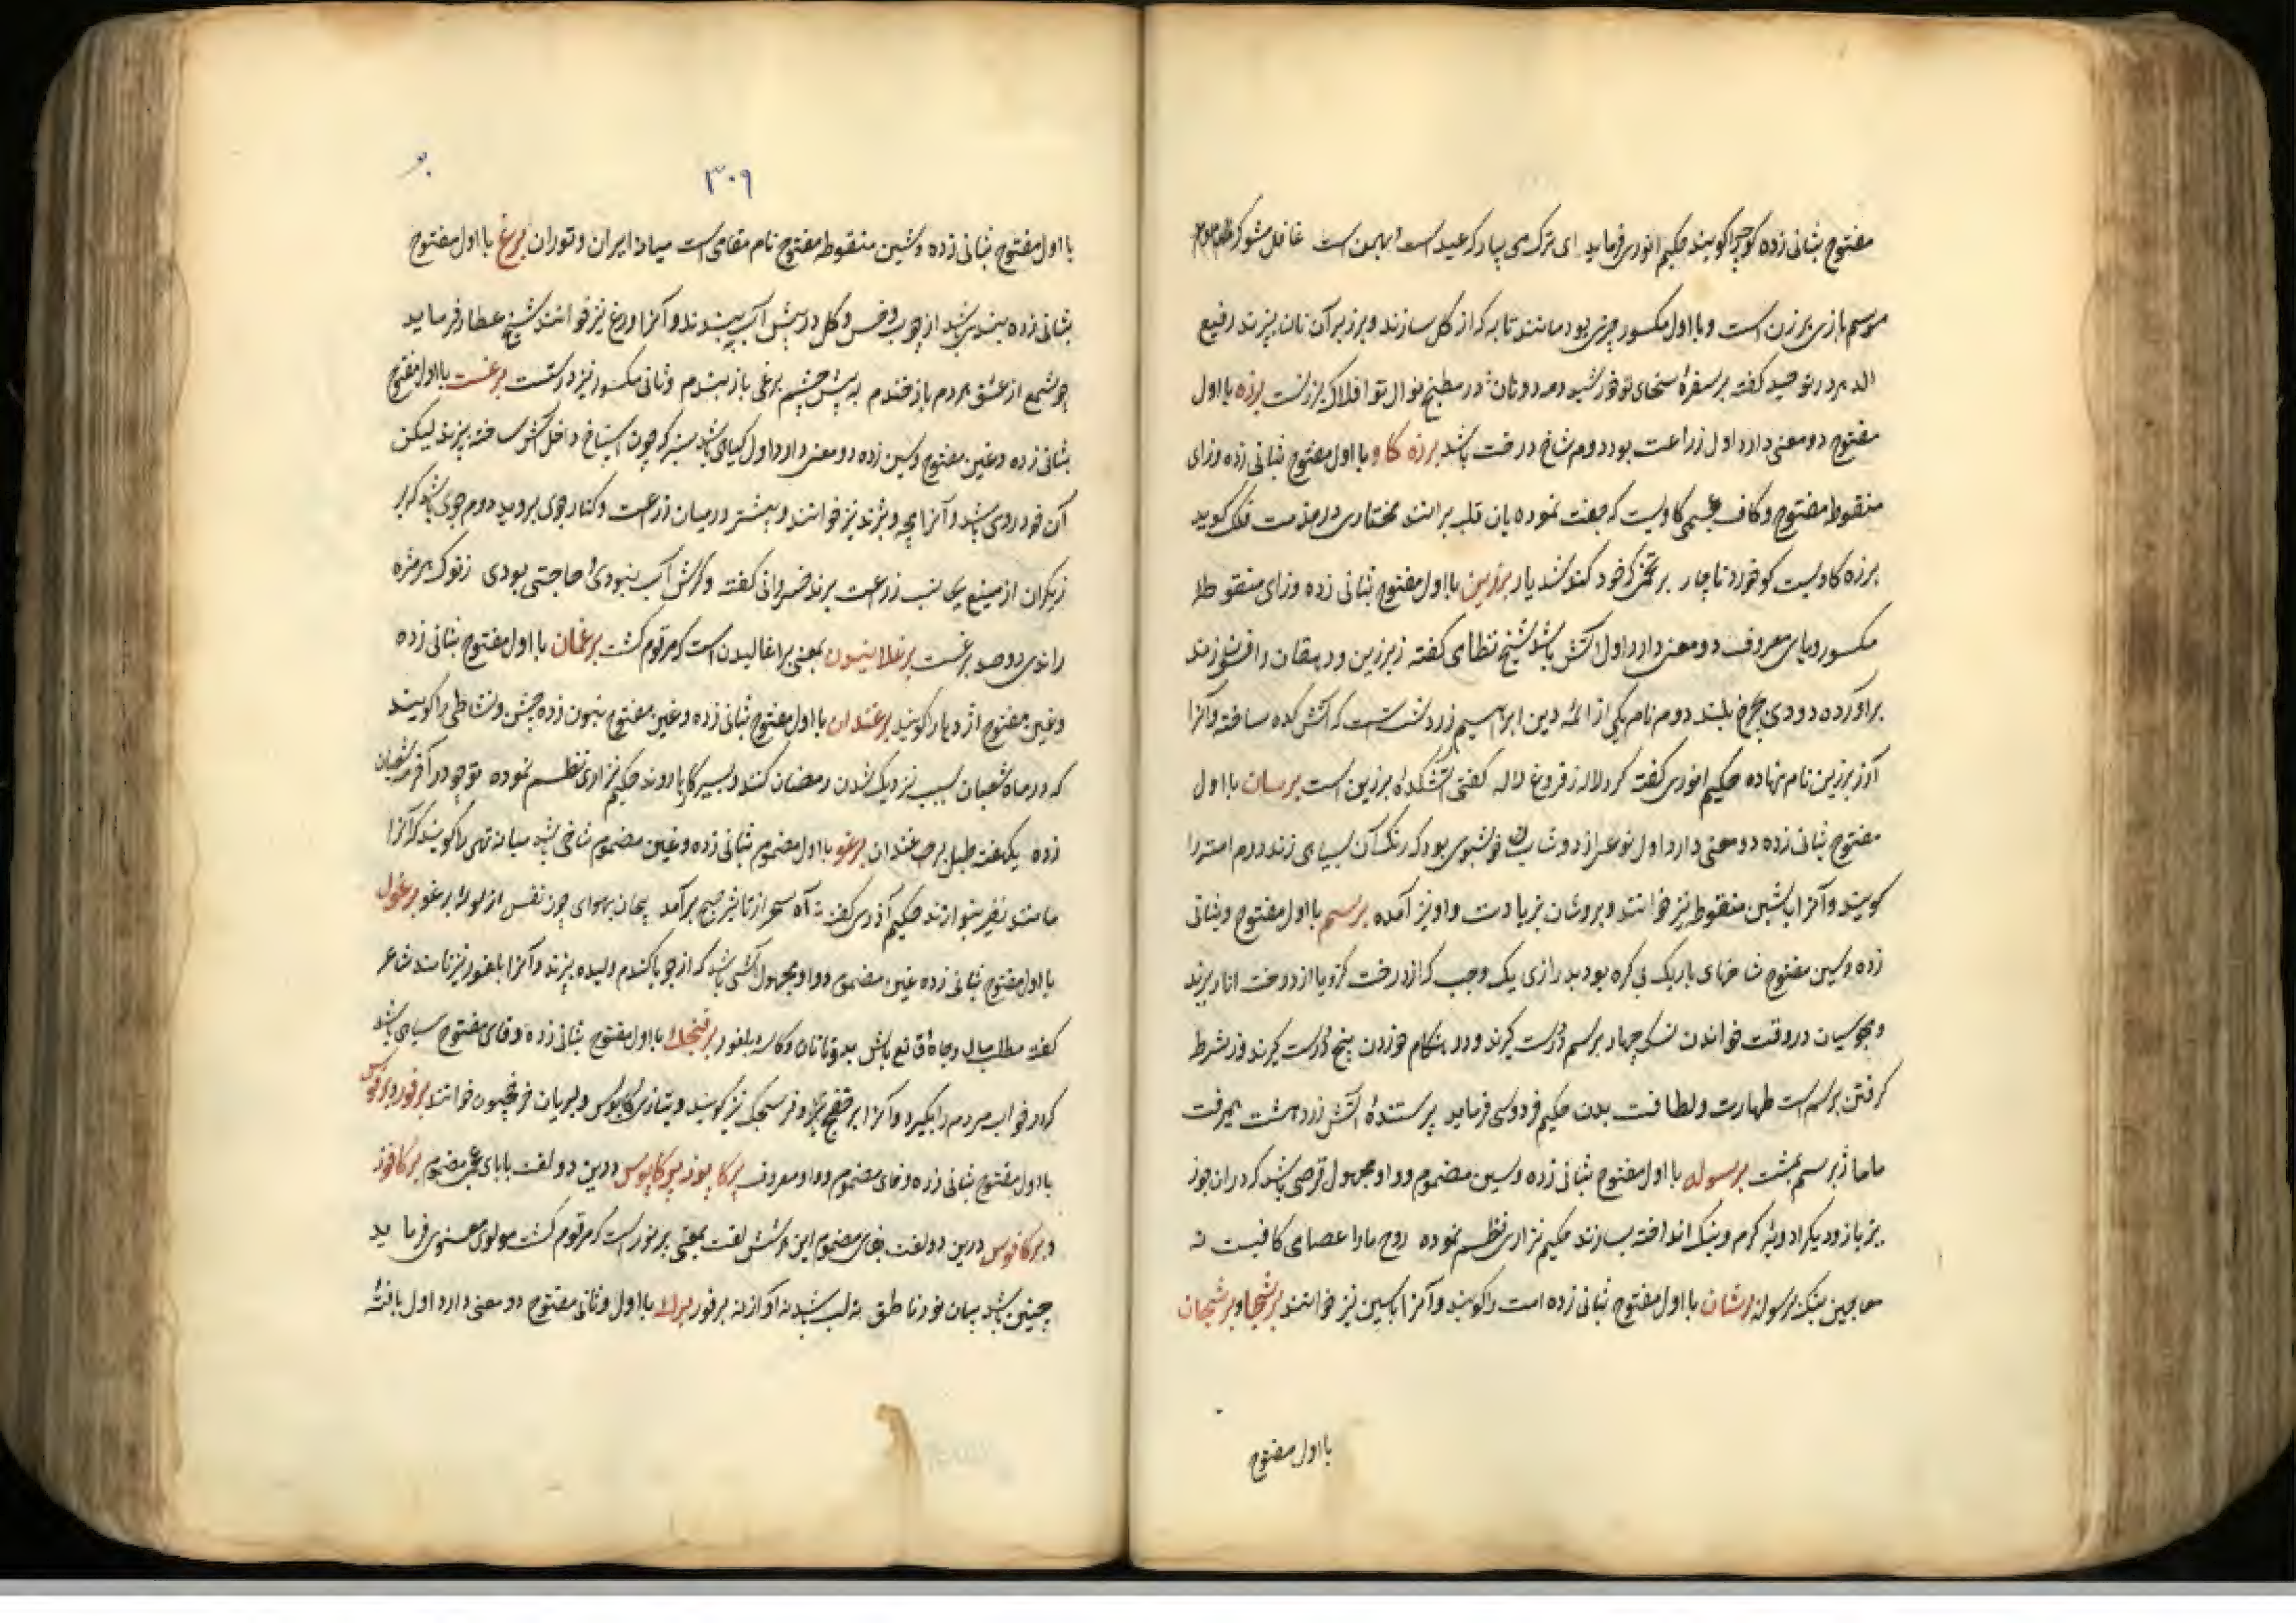 مفتوح بثانی زده کوچه را گویند حکیم انوری فرماید ای ترک می بیار که عید است و بهمن است غافل مشو که
موسم بازی برزن است و با اول مکسور چیزی بود مانند تابه که از گل سازند و برزبر آن نان پزند رفیع
الدین در توحید گفته بر سفرهٔ سخای تو خورشید و مه دو نان در مطبخ نوال تو افلاک برزنست برزه با اول
مفتوح دو معنی دارد اول زراعت بود دوم شاخ درخت باشد برزه کاو با اول مفتوح بثانی زده وزای
منقوطه مفتوح و کاف عجمی کاویست که جفت نموده بان قلبه برانند مختاری در مذمت فلک گوید
برزه کاویست کو خورد ناچار بر تخمی که خود کند شد یار برزین با اول مفتوح بثانی زده وزای منقوطه
مکسور و یای معروف دو معنی دارد اول آتش باشد شیخ نظامی گفته ز برزین و دهقان و افسون زند
برآورده دودی بچرخ بلند دوم نام یکی از ائمه دین ابراهیم زردشت است که آتش کده ساخته و آنرا
آذر برزین نام نهاده حکیم انوری گفته گرد لاله ز فروغ لاله گفتی آتشکدهٔ برزین است برسان با اول
مفتوح بثانی زده دو معنی دارد اول نوعی از دوشاب خوشبوی بود که رنگ آن بسیاهی زند دوم امت را
گویند و آنرا بشین منقوطه نیز خوانند و بروشان بزیادت واو نیز آمده برسم با اول مفتوح و بثانی
زده و سین مفتوح شاخهای باریک بی گره بود بدرازی یک وجب که از درخت گز و یا از درخت انار برند
و مجوسیان در وقت خواندن نسک چهار برسم در دست گیرند و در هنگام خوردن پنج در دست گیرند و از شرط
گرفتن برسم است طهارت و لطافت بدن حکیم فردوسی فرماید پرستندهٔ آتش زردهشت همی رفت
با باژ برسم بمشت برسوله با اول مفتوح بثانی زده و سین مضموم و واو مجهول قرصی باشد که در آن جوز
بز باز و دیگر ادویه گرم و بنگ انداخته بسازند حکیم نزاری نظم نموده روح ما را عصامی کافیست نه
معاجین بنگ برسوله برشان با اول مفتوح بثانی زده امت را گویند و آنرا با سین نیز خوانند برشجا و برشجان
با اول مفتوح
۳۰۹
با اول مفتوح بثانی زده و شین منقوطه مفتوح نام مقامی است میانه ایران و توران برغ با اول مفتوح
بثانی زده بندی باشد از چوب و خس و گل در پیش آب ببندند و آنرا ورغ نیز خوانند شیخ عطار فرماید
چو شمع از عشق هر دم باز خندم به پیش چشم برغی باز بندم و ثانی مکسور نیز درستست برغست با اول مفتوح
بثانی زده و غین مفتوح و سین زده دو معنی دارد اول گیاهی باشد سبز که چون اسپناخ داخل آش ساخته پزند لیکن
آن خود روی باشد و آنرا پچه و پژند نیز خوانند و بیشتر در میان زراعت و کنار جوی بروید دوم جوی باشد که
برزیگران از منبع بجانب زراعت برند خسروانی گفته و گرش آب نبودی و حاجتی بودی ز نوک هر مژه
راندی دو صد برغست برغلانیدن بمعنی برآغالیدن است که مرقوم گشت برغمان با اول مفتوح بثانی زده
و غین مفتوح اژدها را گویند برغندان با اول مفتوح بثانی زده و غین مفتوح بنون زده جشن و نشاطی را گویند
که در ماه شعبان بسبب نزدیک شدن رمضان کنند و بسیر گاها روند حکیم نزاری نظم نموده چو در آخر شعبان
زده یک هفته طبل برغندان برغو با اول مضموم بثانی زده و غین مضموم شاخی باشد میانه تهی را گویند که آنرا
مانند نفیر بنوازند حکیم آذری گفته نه آه سحر از تاثیر صبح برآمد بهوای چون نفس از لولهٔ برغو برغول
با اول مفتوح بثانی زده غین مضموم و واو مجهول آشی باشد که از جو یا گندم دلیده پزند و آنرا بلغور نیز نامند شاعر
گفته مطلب مال و جاه قانع باش بدوتا نان و کاسه بلغور برفنجک با اول مفتوح بثانی زده و فای مفتوح سیاهی باشد
که در خواب مردم را بگیرد و آنرا برخفج و فرنجک نیز گویند و بتازی کابوس و بسریانی خوانند برفور و برفوس
با اول مفتوح بثانی زده و فای مضموم و واو معروف برکاپوز برکاپوس درین دو لغت با بای عجمی مضموم برکافوز
و برکافوس درین دو لغت بفای مضموم این هر شش لغت بمعنی برفوز است که مرقوم گشت مولوی معنوی فرماید
چنین باشد بیان نور ناطق نه لب باشد نه آواز نه برفور برک با اول و ثانی مفتوح دو معنی دارد اول بافته